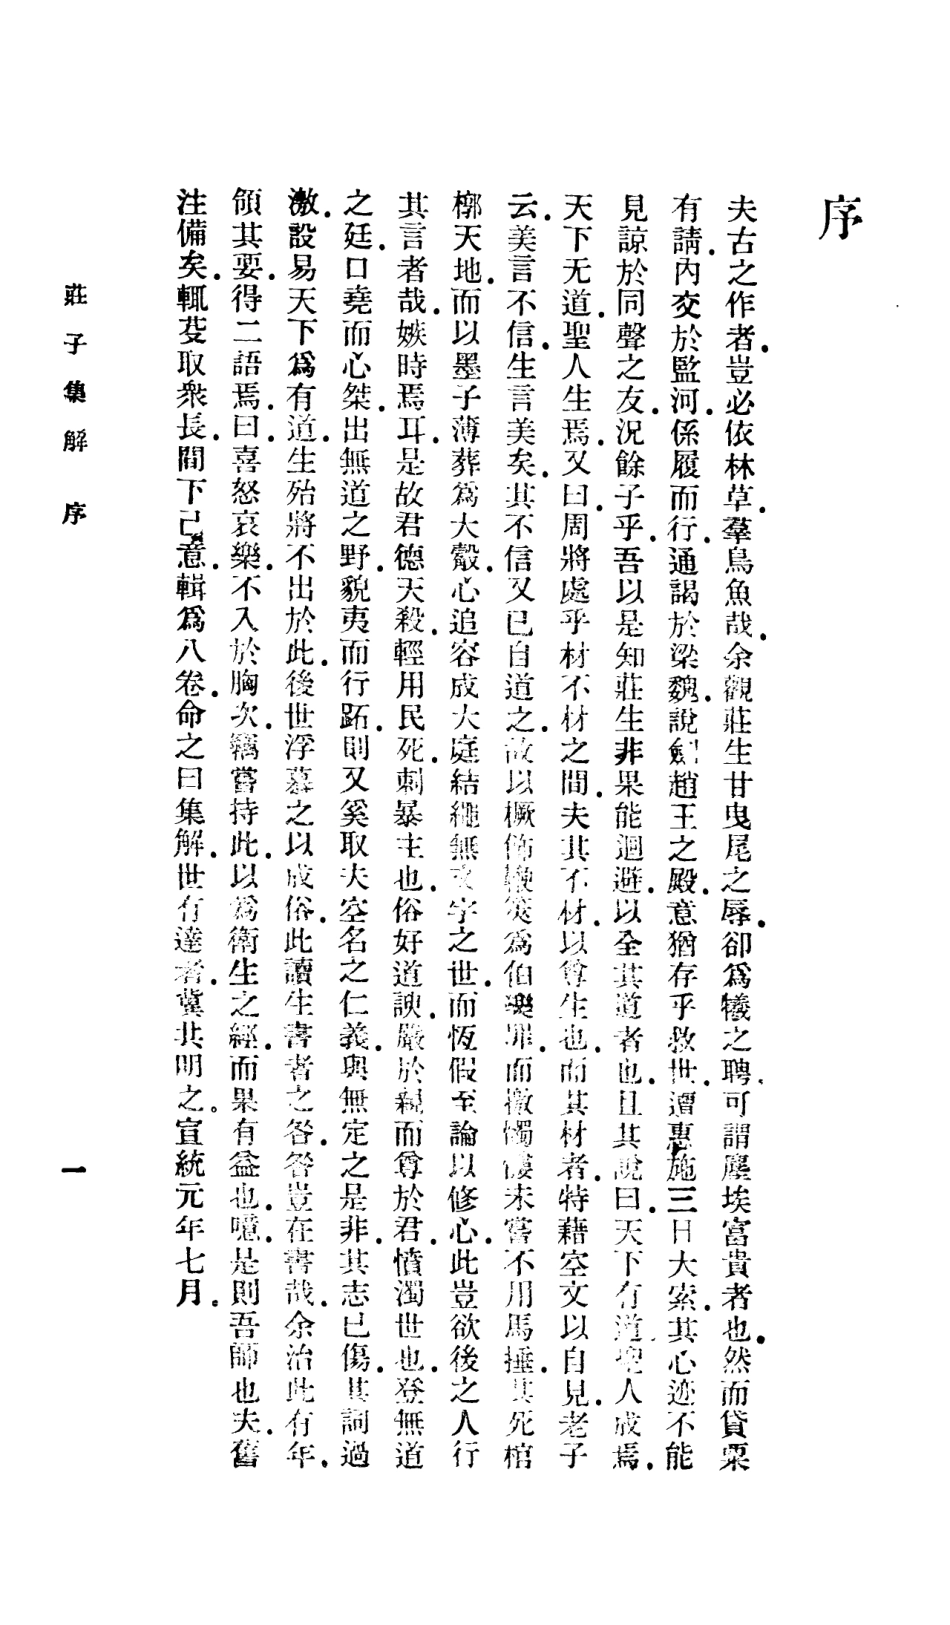 序
夫古之作者.豈必依林草.羣鳥魚哉.余觀莊生甘曳尾之辱.卻爲犧之聘.可謂塵埃富貴者也.然而貸粟
有請.內交於監河.係履而行.通謁於梁魏.說劍趙王之殿.意猶存乎救世.遭惠施三日大索.其心迹不能
見諒於同聲之友.況餘子乎.吾以是知莊生非果能迴避以全其道者也.且其說曰.天下有道.聖人成焉.
天下无道.聖人生焉.又曰.周將處乎材不材之間.夫其不材.以尊生也.而其材者.特藉空文以自見.老子
云.美言不信.生言美矣.其不信又已自道之.故以橛飾鞭筴爲伯樂罪.而撽髑髏未嘗不用馬捶.其死棺
槨天地.而以墨子薄葬爲大觳.心追容成大庭結繩無文字之世.而恆假至論以修心.此豈欲後之人行
其言者哉.嫉時焉耳.是故君德天殺.輕用民死.刺暴主也.俗好道諛.嚴於親而尊於君.憤濁世也.登無道
之廷.口堯而心桀.出無道之野.貌夷而行跖.則又奚取夫空名之仁義.與無定之是非.其志已傷.其詞過
激.設易天下爲有道.生殆將不出於此.後世浮慕之以成俗.此讀生書者之咎.咎豈在書哉.余治此有年.
領其要.得二語焉.曰.喜怒哀樂.不入於胸次.竊嘗持此.以爲衛生之經.而果有益也.噫.是則吾師也夫.舊
注備矣.輒芟取衆長.間下己意.輯爲八卷.命之曰集解.世有達者.冀共明之。宣統元年七月.
莊子集解 序
一